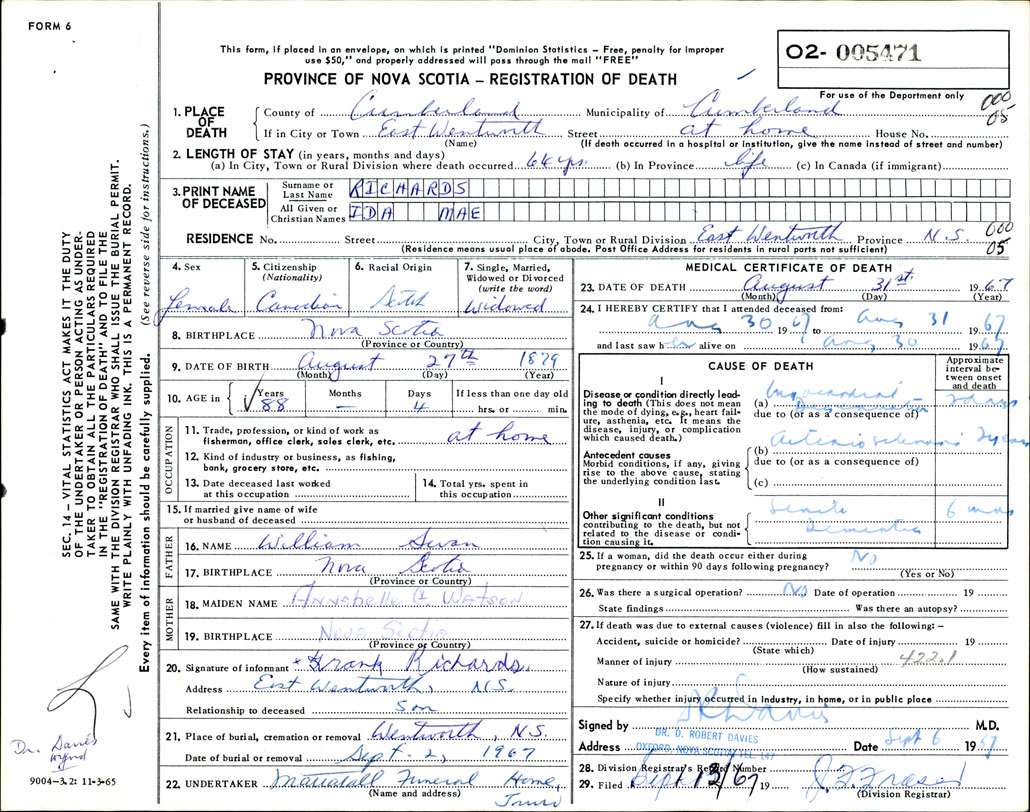 FORM 6
This form, if placed in an envelope, on which is printed "Dominion Statistics – Free, penalty for improper
use $50," and properly addressed will pass through the mail "FREE"
PROVINCE OF NOVA SCOTIA – REGISTRATION OF DEATH
O2- 005471
For use of the Department only
000
05
1. PLACE OF DEATH County of Cumberland Municipality of Cumberland
If in City or Town East Wentworth Street at home House No.
(Name) (If death occurred in a hospital or institution, give the name instead of street and number)
2. LENGTH OF STAY (in years, months and days)
(a) In City, Town or Rural Division where death occurred 64 yrs. (b) In Province life (c) In Canada (if immigrant)
3. PRINT NAME OF DECEASED
Surname or Last Name RICHARDS
All Given or Christian Names IDA MAE
RESIDENCE No. Street City, Town or Rural Division East Wentworth Province N.S.
000
05
(Residence means usual place of abode. Post Office Address for residents in rural parts not sufficient)
4. Sex Female
5. Citizenship (Nationality) Canadian
6. Racial Origin Scotch
7. Single, Married, Widowed or Divorced (write the word) Widowed
8. BIRTHPLACE Nova Scotia
(Province or Country)
9. DATE OF BIRTH August 27th 1879
(Month) (Day) (Year)
10. AGE in Years 88 Months – Days 4 If less than one day old
hrs. or min.
OCCUPATION
11. Trade, profession, or kind of work as
fisherman, office clerk, sales clerk, etc. at home
12. Kind of industry or business, as fishing,
bank, grocery store, etc.
13. Date deceased last worked
at this occupation
14. Total yrs. spent in
this occupation
15. If married give name of wife
or husband of deceased
FATHER
16. NAME William Swan
17. BIRTHPLACE Nova Scotia
(Province or Country)
MOTHER
18. MAIDEN NAME Annabelle C Watson
19. BIRTHPLACE Nova Scotia
(Province or Country)
20. Signature of informant Frank Richards.
Address East Wentworth, N.S.
Relationship to deceased Son
21. Place of burial, cremation or removal Wentworth, N.S.
Date of burial or removal Sept. 2, 1967
22. UNDERTAKER Mattatall Funeral Home,
(Name and address) Truro
MEDICAL CERTIFICATE OF DEATH
23. DATE OF DEATH August 31st 1967
(Month) (Day) (Year)
24. I HEREBY CERTIFY that I attended deceased from:
Aug 30 1967 to Aug 31 1967
and last saw her alive on Aug 30 1967
CAUSE OF DEATH
Approximate interval between onset and death
I
Disease or condition directly leading to death (This does not mean the mode of dying, e.g., heart failure, asthenia, etc. It means the disease, injury, or complication which caused death.)
(a) Myocardial 2 days
due to (or as a consequence of)
Antecedent causes
Morbid conditions, if any, giving rise to the above cause, stating the underlying condition last.
(b)
due to (or as a consequence of)
(c)
II
Other significant conditions contributing to the death, but not related to the disease or condition causing it.
Senile 6 mos
Dementia
25. If a woman, did the death occur either during
pregnancy or within 90 days following pregnancy? No
(Yes or No)
26. Was there a surgical operation? No Date of operation 19
State findings Was there an autopsy?
27. If death was due to external causes (violence) fill in also the following: –
Accident, suicide or homicide? Date of injury 19
(State which)
Manner of injury 422.1
(How sustained)
Nature of injury
Specify whether injury occurred in Industry, in home, or in public place
Signed by D R Davies M.D.
DR. D. ROBERT DAVIES
Address OXFORD, NOVA SCOTIA TEL. 147 Date Sept 6 1967
28. Division Registrar's Record Number
29. Filed Sept 13/67 19 J. F. Fraser
(Division Registrar)
SEC. 14 – VITAL STATISTICS ACT MAKES IT THE DUTY
OF THE UNDERTAKER OR PERSON ACTING AS UNDER-
TAKER TO OBTAIN ALL THE PARTICULARS REQUIRED
IN THE "REGISTRATION OF DEATH" AND TO FILE THE
SAME WITH THE DIVISION REGISTRAR WHO SHALL ISSUE THE BURIAL PERMIT.
WRITE PLAINLY WITH UNFADING INK. THIS IS A PERMANENT RECORD.
Every item of information should be carefully supplied. (See reverse side for instructions.)
Dr. Davies
9004–3.2: 11-3-65